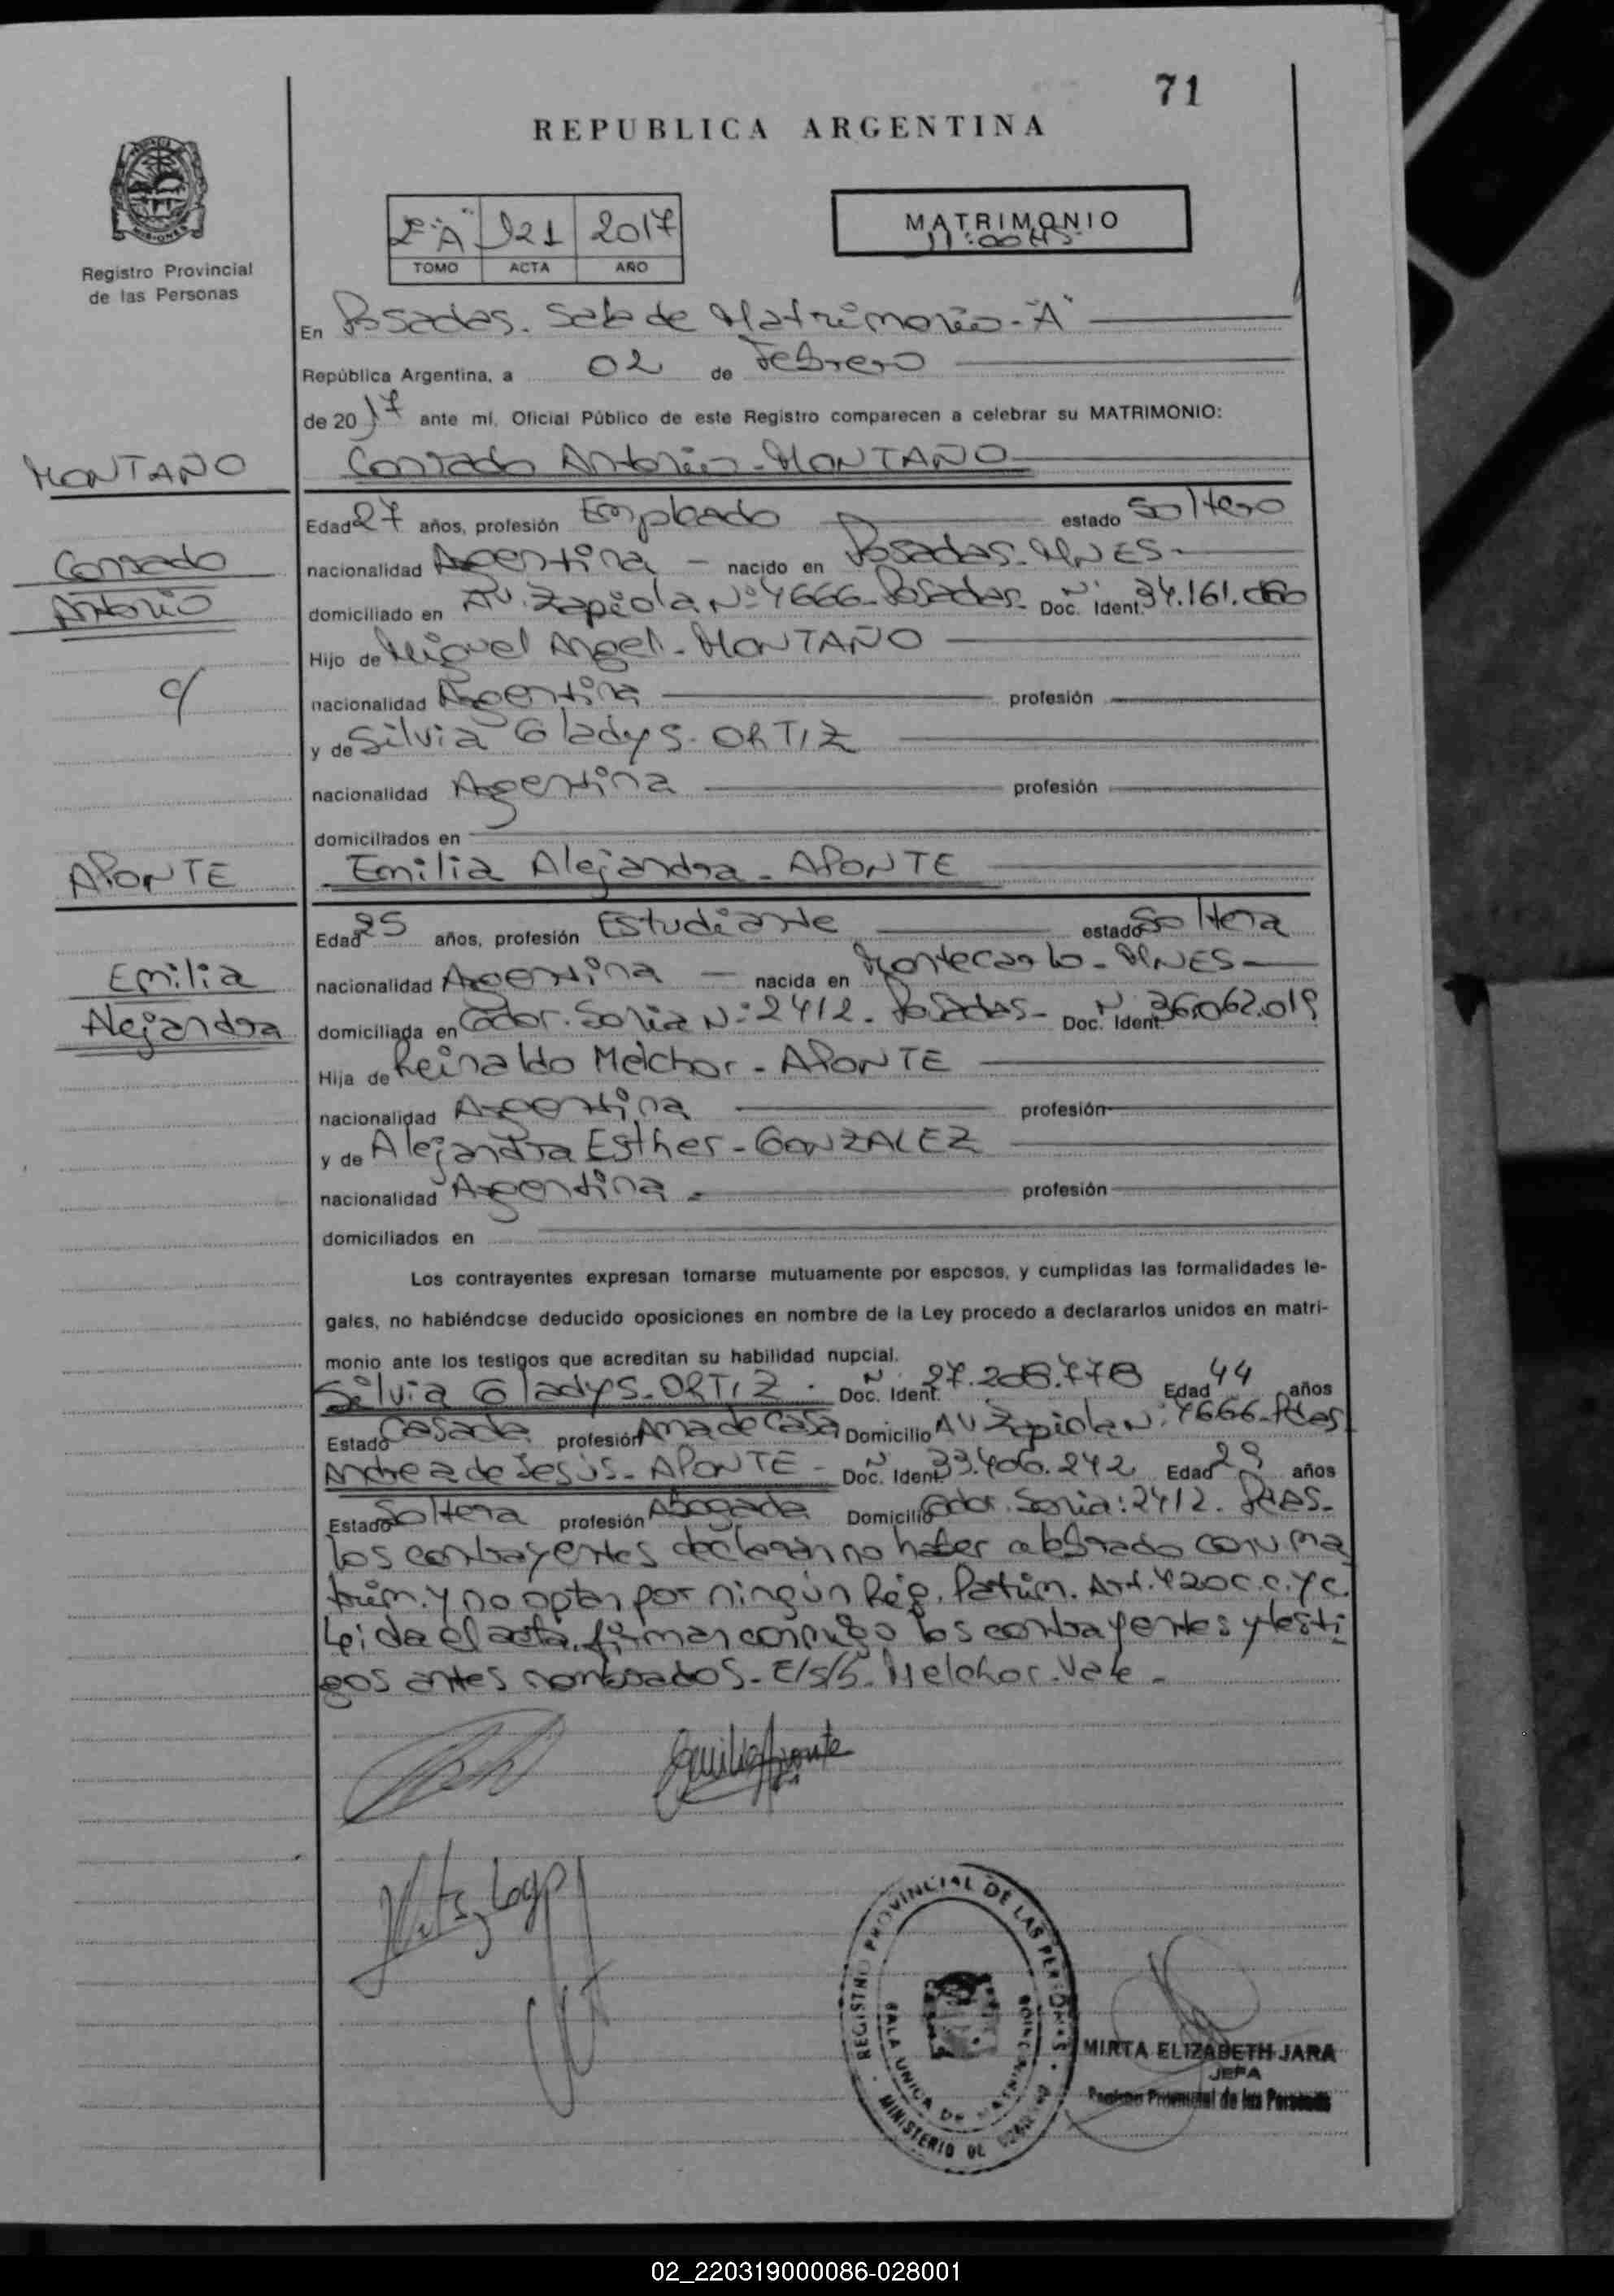 71
REPUBLICA ARGENTINA
2º "A" 121 2017
TOMO ACTA AÑO
MATRIMONIO
11:00 HS.
MISIONES
Registro Provincial
de las Personas
En Posadas. Sala de Matrimonio - "A"
República Argentina, a 02 de Febrero
de 2017 ante mí, Oficial Público de este Registro comparecen a celebrar su MATRIMONIO:
MONTAÑO
Conrado Antonio - MONTAÑO
Edad 27 años, profesión Empleado estado Soltero
Conrado
nacionalidad Argentina - nacido en Posadas - MNES -
Antonio
domiciliado en AV. Zapiola Nº 4666 - Posadas - Doc. Ident. Nº 34.161.
Hijo de Miguel Angel - MONTAÑO
c/
nacionalidad Argentina profesión
y de Silvia Gladys - ORTIZ
nacionalidad Argentina profesión
domiciliados en
APONTE
Emilia Alejandra - APONTE
Edad 25 años, profesión Estudiante estado Soltera
Emilia
nacionalidad Argentina - nacida en Montecarlo - MNES -
Alejandra
domiciliada en Gdor. Soria Nº: 2412 - Posadas - Doc. Ident. Nº 36.062.019
Hija de Reinaldo Melchor - APONTE
nacionalidad Argentina profesión
y de Alejandra Esther - GONZALEZ
nacionalidad Argentina - profesión
domiciliados en
Los contrayentes expresan tomarse mutuamente por esposos, y cumplidas las formalidades le-
gales, no habiéndose deducido oposiciones en nombre de la Ley procedo a declararlos unidos en matri-
monio ante los testigos que acreditan su habilidad nupcial.
Silvia Gladys - ORTIZ - Doc. Ident. Nº 27.208.778 Edad 44 años
Estado Casada profesión Ama de Casa Domicilio AV Zapiola Nº: 4666 - Pdas
Andrea de Jesús - APONTE - Doc. Ident. Nº 33.406.242 Edad 29 años
Estado Soltera profesión Abogada Domicilio Gdor. Soria: 2412. Pdas.
Los contrayentes declaran no haber celebrado conv. ma
trim. y no optan por ningún Rég. Patrim. Art. 420 C.C. y C.
Leida el acta, firman conmigo los contrayentes y testi
gos antes nombrados - E/S/S. Melchor. Vale -
REGISTRO PROVINCIAL DE LAS PERSONAS
SALA UNICA DE MATRIMONIOS
MINISTERIO DE GOBIERNO
MIRTA ELIZABETH JARA
JEFA
Registro Provincial de las Personas
02_220319000086-028001